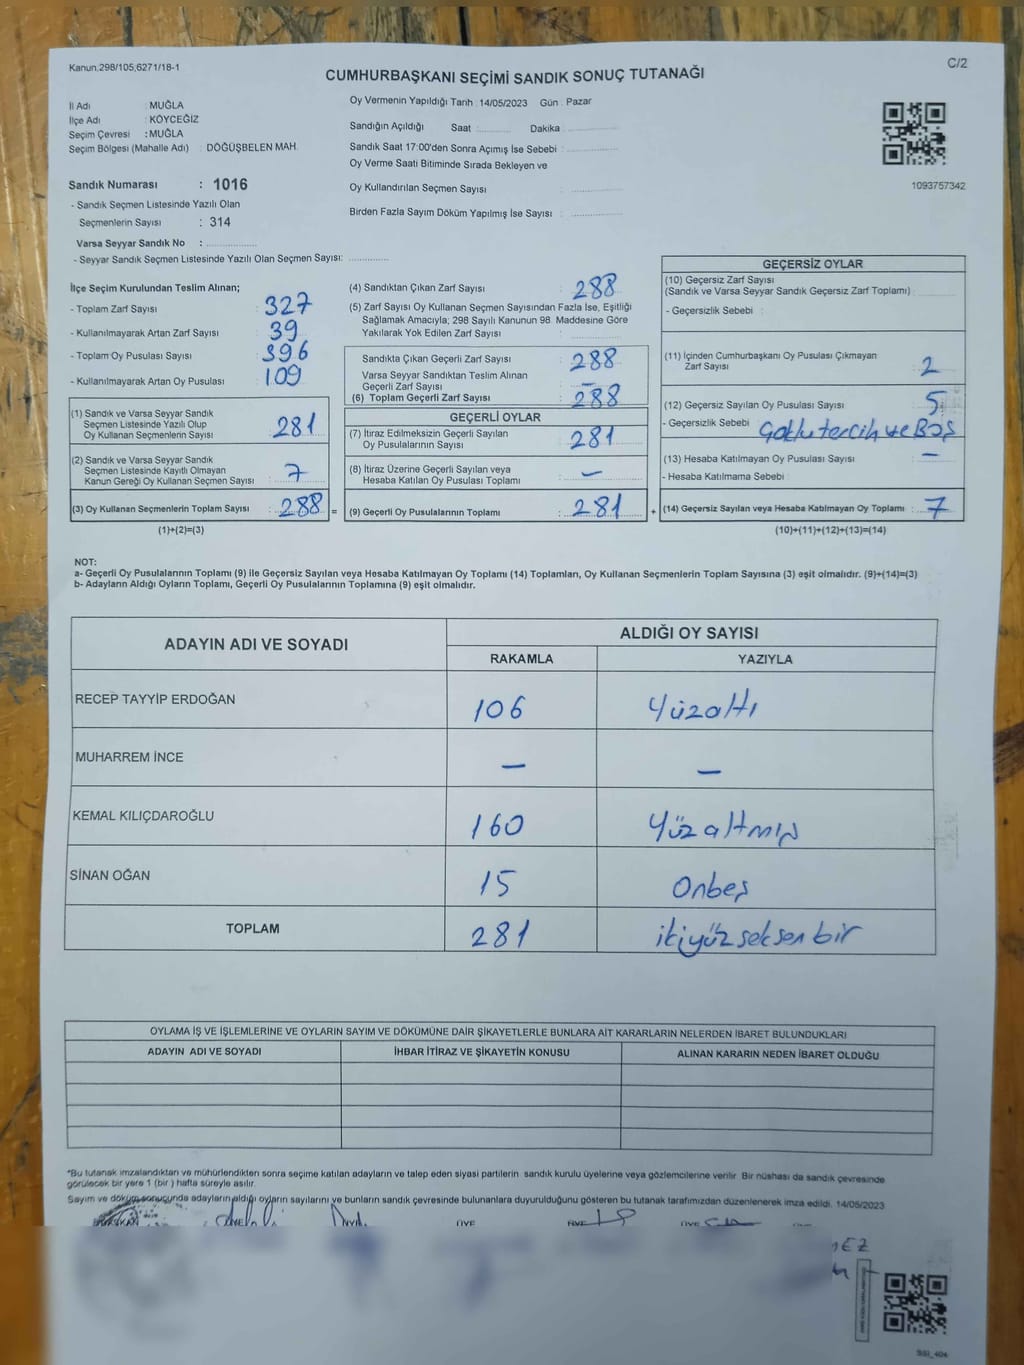 Kanun,298/105,6271/18-1
C/2
CUMHURBAŞKANI SEÇİMİ SANDIK SONUÇ TUTANAĞI
İl Adı : MUĞLA
İlçe Adı : KÖYCEĞİZ
Seçim Çevresi : MUĞLA
Seçim Bölgesi (Mahalle Adı) : DÖĞÜŞBELEN MAH.
Sandık Numarası : 1016
- Sandık Seçmen Listesinde Yazılı Olan
Seçmenlerin Sayısı : 314
Varsa Seyyar Sandık No :
- Seyyar Sandık Seçmen Listesinde Yazılı Olan Seçmen Sayısı:
Oy Vermenin Yapıldığı Tarih : 14/05/2023 Gün : Pazar
Sandığın Açıldığı Saat : Dakika :
Sandık Saat 17:00'den Sonra Açımış İse Sebebi :
Oy Verme Saati Bitiminde Sırada Bekleyen ve
Oy Kullandırılan Seçmen Sayısı :
Birden Fazla Sayım Döküm Yapılmış İse Sayısı :
1093757342
İlçe Seçim Kurulundan Teslim Alınan;
- Toplam Zarf Sayısı : 327
- Kullanılmayarak Artan Zarf Sayısı : 39
- Toplam Oy Pusulası Sayısı : 396
- Kullanılmayarak Artan Oy Pusulası : 109
(1) Sandık ve Varsa Seyyar Sandık
Seçmen Listesinde Yazılı Olup
Oy Kullanan Seçmenlerin Sayısı : 281
(2) Sandık ve Varsa Seyyar Sandık
Seçmen Listesinde Kayıtlı Olmayan
Kanun Gereği Oy Kullanan Seçmen Sayısı : 7
(3) Oy Kullanan Seçmenlerin Toplam Sayısı : 288 =
(1)+(2)=(3)
(4) Sandıktan Çıkan Zarf Sayısı : 288
(5) Zarf Sayısı Oy Kullanan Seçmen Sayısından Fazla İse, Eşitliği
Sağlamak Amacıyla; 298 Sayılı Kanunun 98. Maddesine Göre
Yakılarak Yok Edilen Zarf Sayısı :
Sandıkta Çıkan Geçerli Zarf Sayısı : 288
Varsa Seyyar Sandıktan Teslim Alınan
Geçerli Zarf Sayısı : —
(6) Toplam Geçerli Zarf Sayısı : 288
GEÇERLİ OYLAR
(7) İtiraz Edilmeksizin Geçerli Sayılan
Oy Pusulalarının Sayısı : 281
(8) İtiraz Üzerine Geçerli Sayılan veya
Hesaba Katılan Oy Pusulası Toplamı : —
(9) Geçerli Oy Pusulalarının Toplamı : 281 +
GEÇERSİZ OYLAR
(10) Geçersiz Zarf Sayısı
(Sandık ve Varsa Seyyar Sandık Geçersiz Zarf Toplamı) :
- Geçersizlik Sebebi :
(11) İçinden Cumhurbaşkanı Oy Pusulası Çıkmayan
Zarf Sayısı : 2
(12) Geçersiz Sayılan Oy Pusulası Sayısı : 5
- Geçersizlik Sebebi : Çoklu tercih ve Boş
(13) Hesaba Katılmayan Oy Pusulası Sayısı : —
- Hesaba Katılmama Sebebi :
(14) Geçersiz Sayılan veya Hesaba Katılmayan Oy Toplamı : 7
(10)+(11)+(12)+(13)=(14)
NOT:
a- Geçerli Oy Pusulalarının Toplamı (9) ile Geçersiz Sayılan veya Hesaba Katılmayan Oy Toplamı (14) Toplamları, Oy Kullanan Seçmenlerin Toplam Sayısına (3) eşit olmalıdır. (9)+(14)=(3)
b- Adayların Aldığı Oyların Toplamı, Geçerli Oy Pusulalarının Toplamına (9) eşit olmalıdır.
ADAYIN ADI VE SOYADI ALDIĞI OY SAYISI
RAKAMLA YAZIYLA
RECEP TAYYİP ERDOĞAN 106 Yüzaltı
MUHARREM İNCE — —
KEMAL KILIÇDAROĞLU 160 Yüzaltmış
SİNAN OĞAN 15 Onbeş
TOPLAM 281 ikiyüz seksen bir
OYLAMA İŞ VE İŞLEMLERİNE VE OYLARIN SAYIM VE DÖKÜMÜNE DAİR ŞİKAYETLERLE BUNLARA AİT KARARLARIN NELERDEN İBARET BULUNDUKLARI
ADAYIN ADI VE SOYADI İHBAR İTİRAZ VE ŞİKAYETİN KONUSU ALINAN KARARIN NEDEN İBARET OLDUĞU
*Bu tutanak imzalandıktan ve mühürlendikten sonra seçime katılan adayların ve talep eden siyasi partilerin sandık kurulu üyelerine veya gözlemcilerine verilir. Bir nüshası da sandık çevresinde
görülecek bir yere 1 (bir ) hafta süreyle asılır.
Sayım ve döküm sonucunda adayların aldığı oyların sayılarını ve bunların sandık çevresinde bulunanlara duyurulduğunu gösteren bu tutanak tarafımızdan düzenlenerek imza edildi. 14/05/2023
BAŞKAN ÜYE ÜYE ÜYE ÜYE